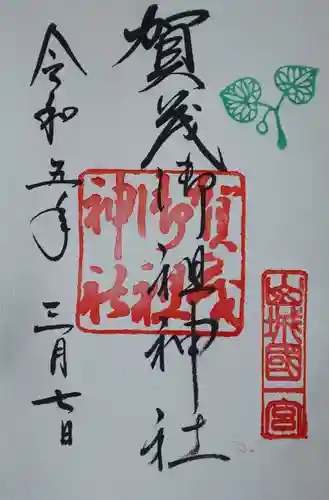 山城國一宮
賀茂御祖神社
賀茂御祖神社
令和五年
三月七日